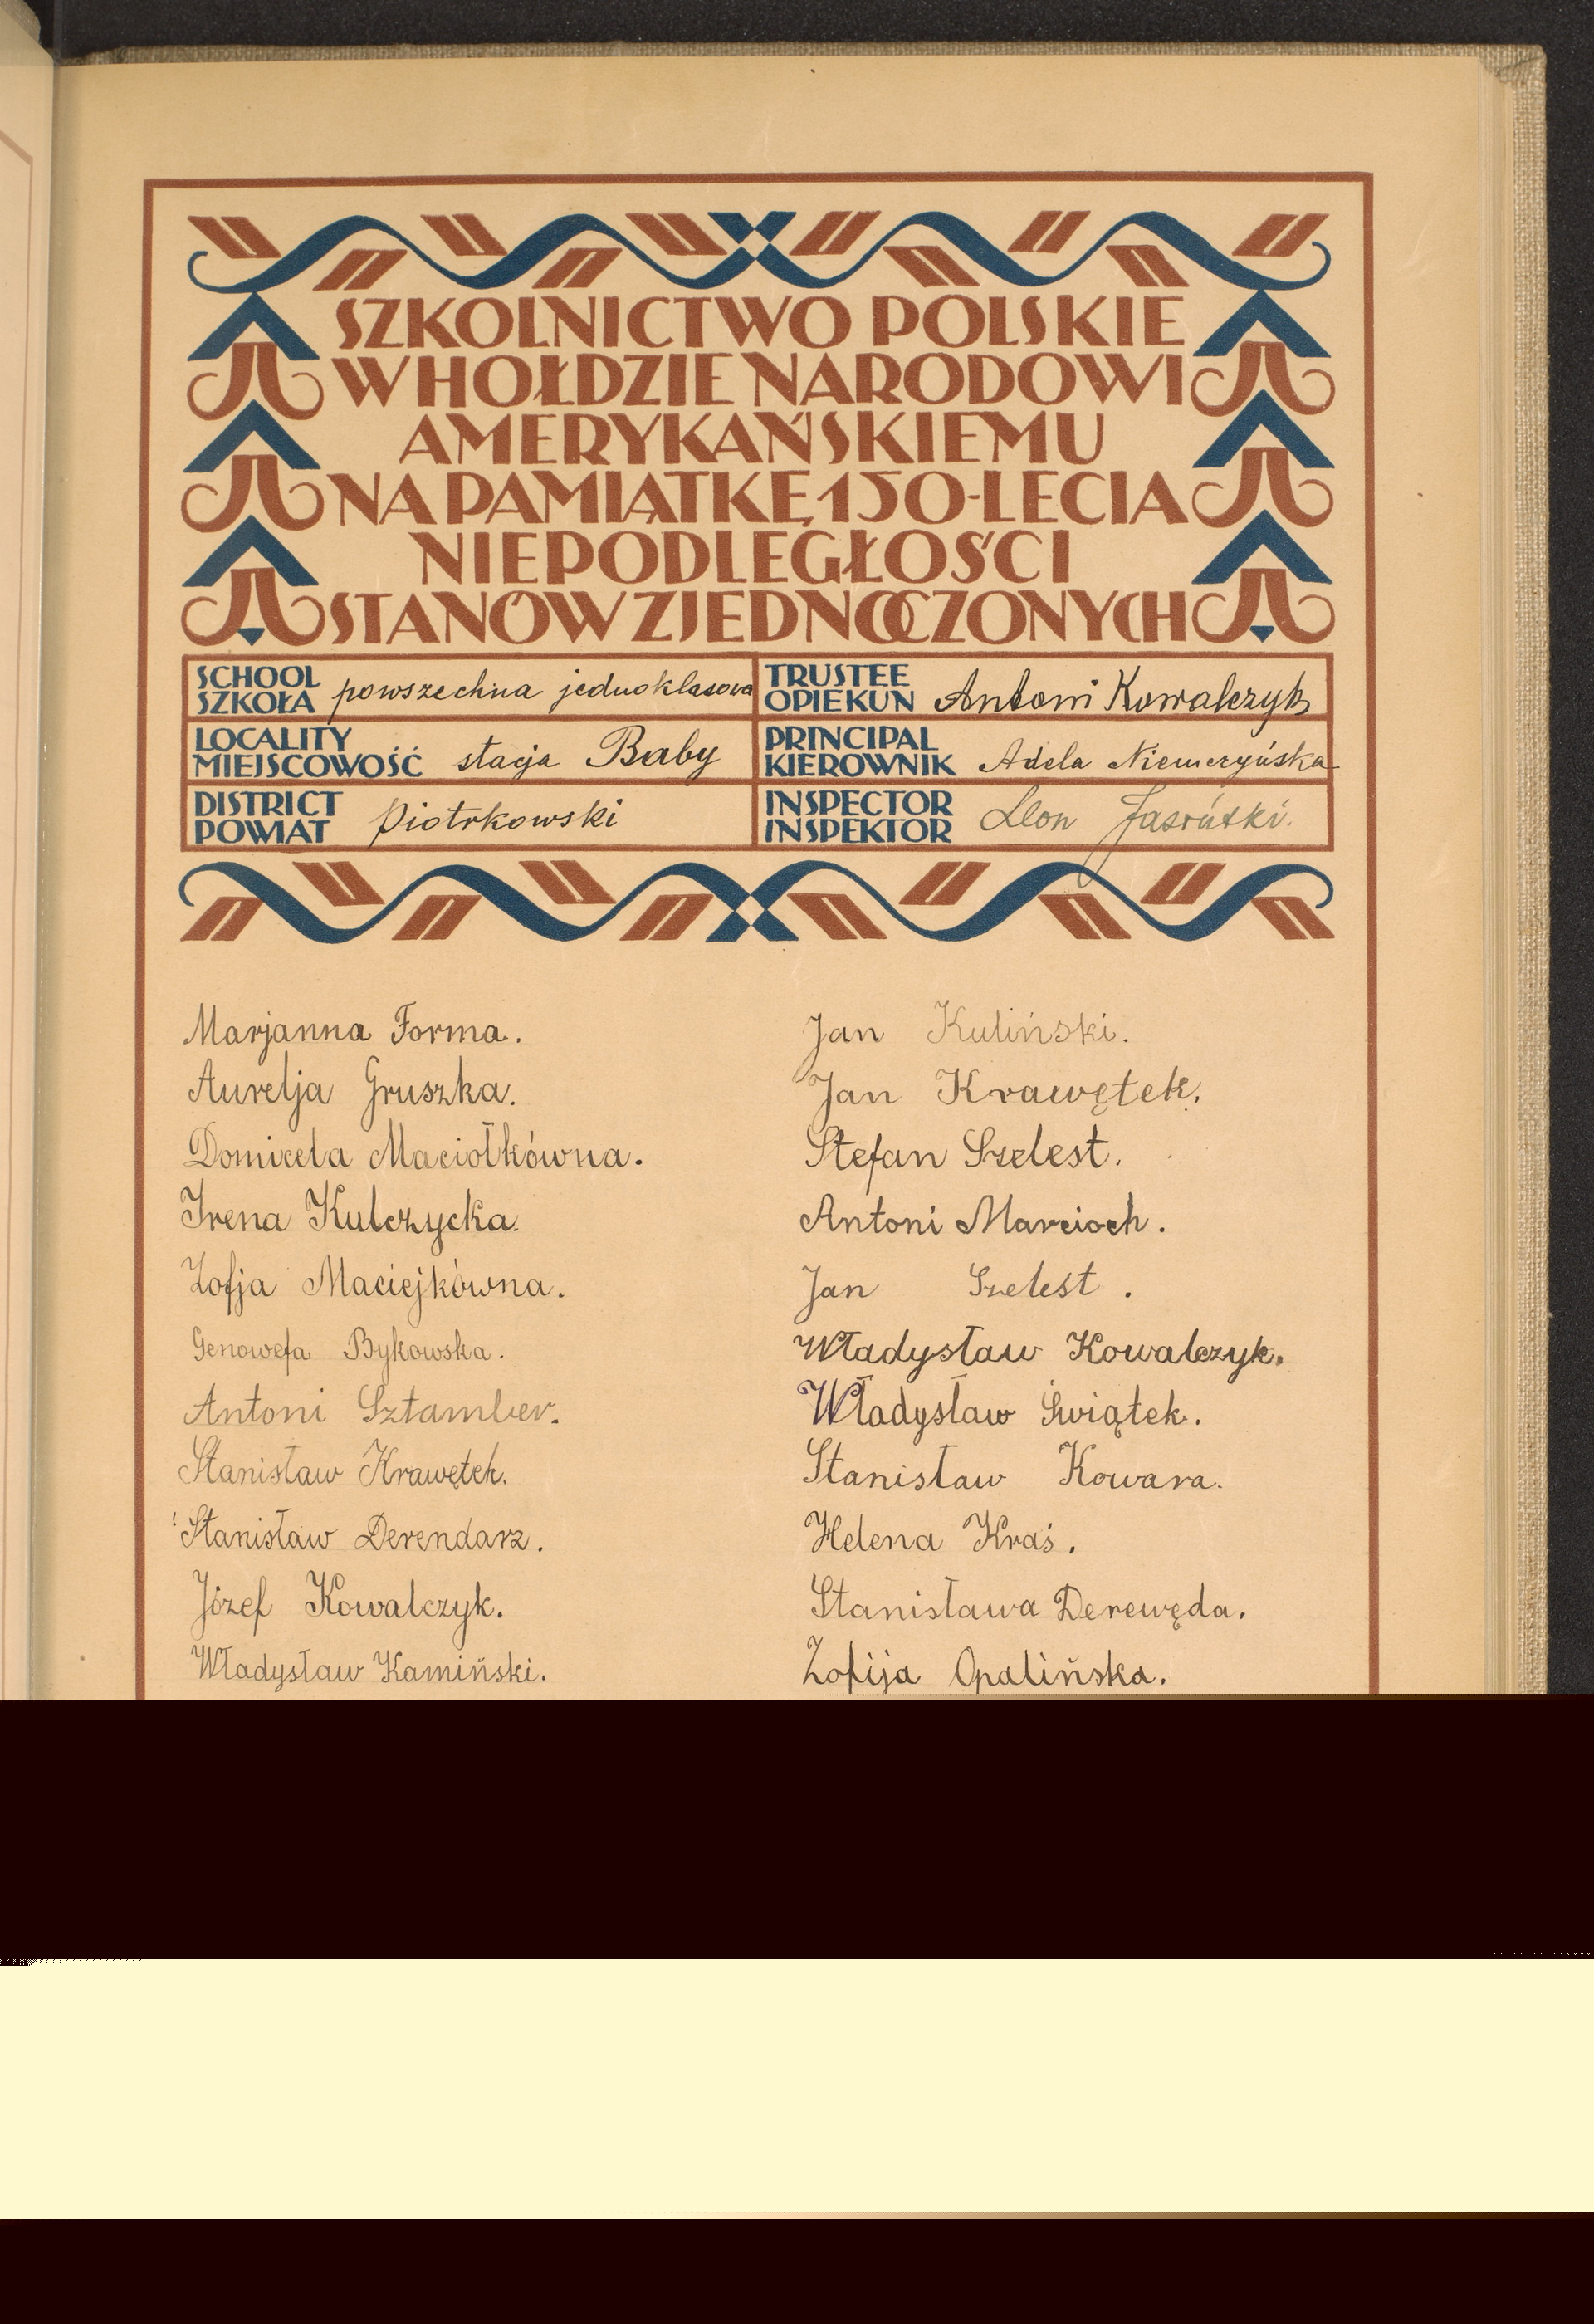 SZKOLNICTWO POLSKIE
W HOŁDZIE NARODOWI
AMERYKAŃSKIEMU
NA PAMIĄTKĘ 150-LECIA
NIEPODLEGŁOŚCI
STANÓW ZJEDNOCZONYCH
SCHOOL
SZKOŁA powszechna jednoklasowa
TRUSTEE
OPIEKUN Antoni Kowalczyk
LOCALITY
MIEJSCOWOŚĆ stacja Baby
PRINCIPAL
KIEROWNIK Adela Niemczyńska
DISTRICT
POWIAT Piotrkowski
INSPECTOR
INSPEKTOR Leon
Marjanna Forma.
Aurelja Gruszka.
Domicela Maciołkówna.
Irena Kulczycka.
Zofja Maciejkówna.
Genowefa Bykowska.
Antoni Sztamber.
Stanisław Krawętek.
Stanisław Derendarz.
Józef Kowalczyk.
Władysław Kamiński.
Jan Kuliński.
Jan Krawętek.
Stefan Szelest.
Antoni Marcioch.
Jan Szelest.
Władysław Kowalczyk.
Władysław Świątek.
Stanisław Kowara.
Helena Kraś.
Stanisława Derewęda.
Zofija Opalińska.